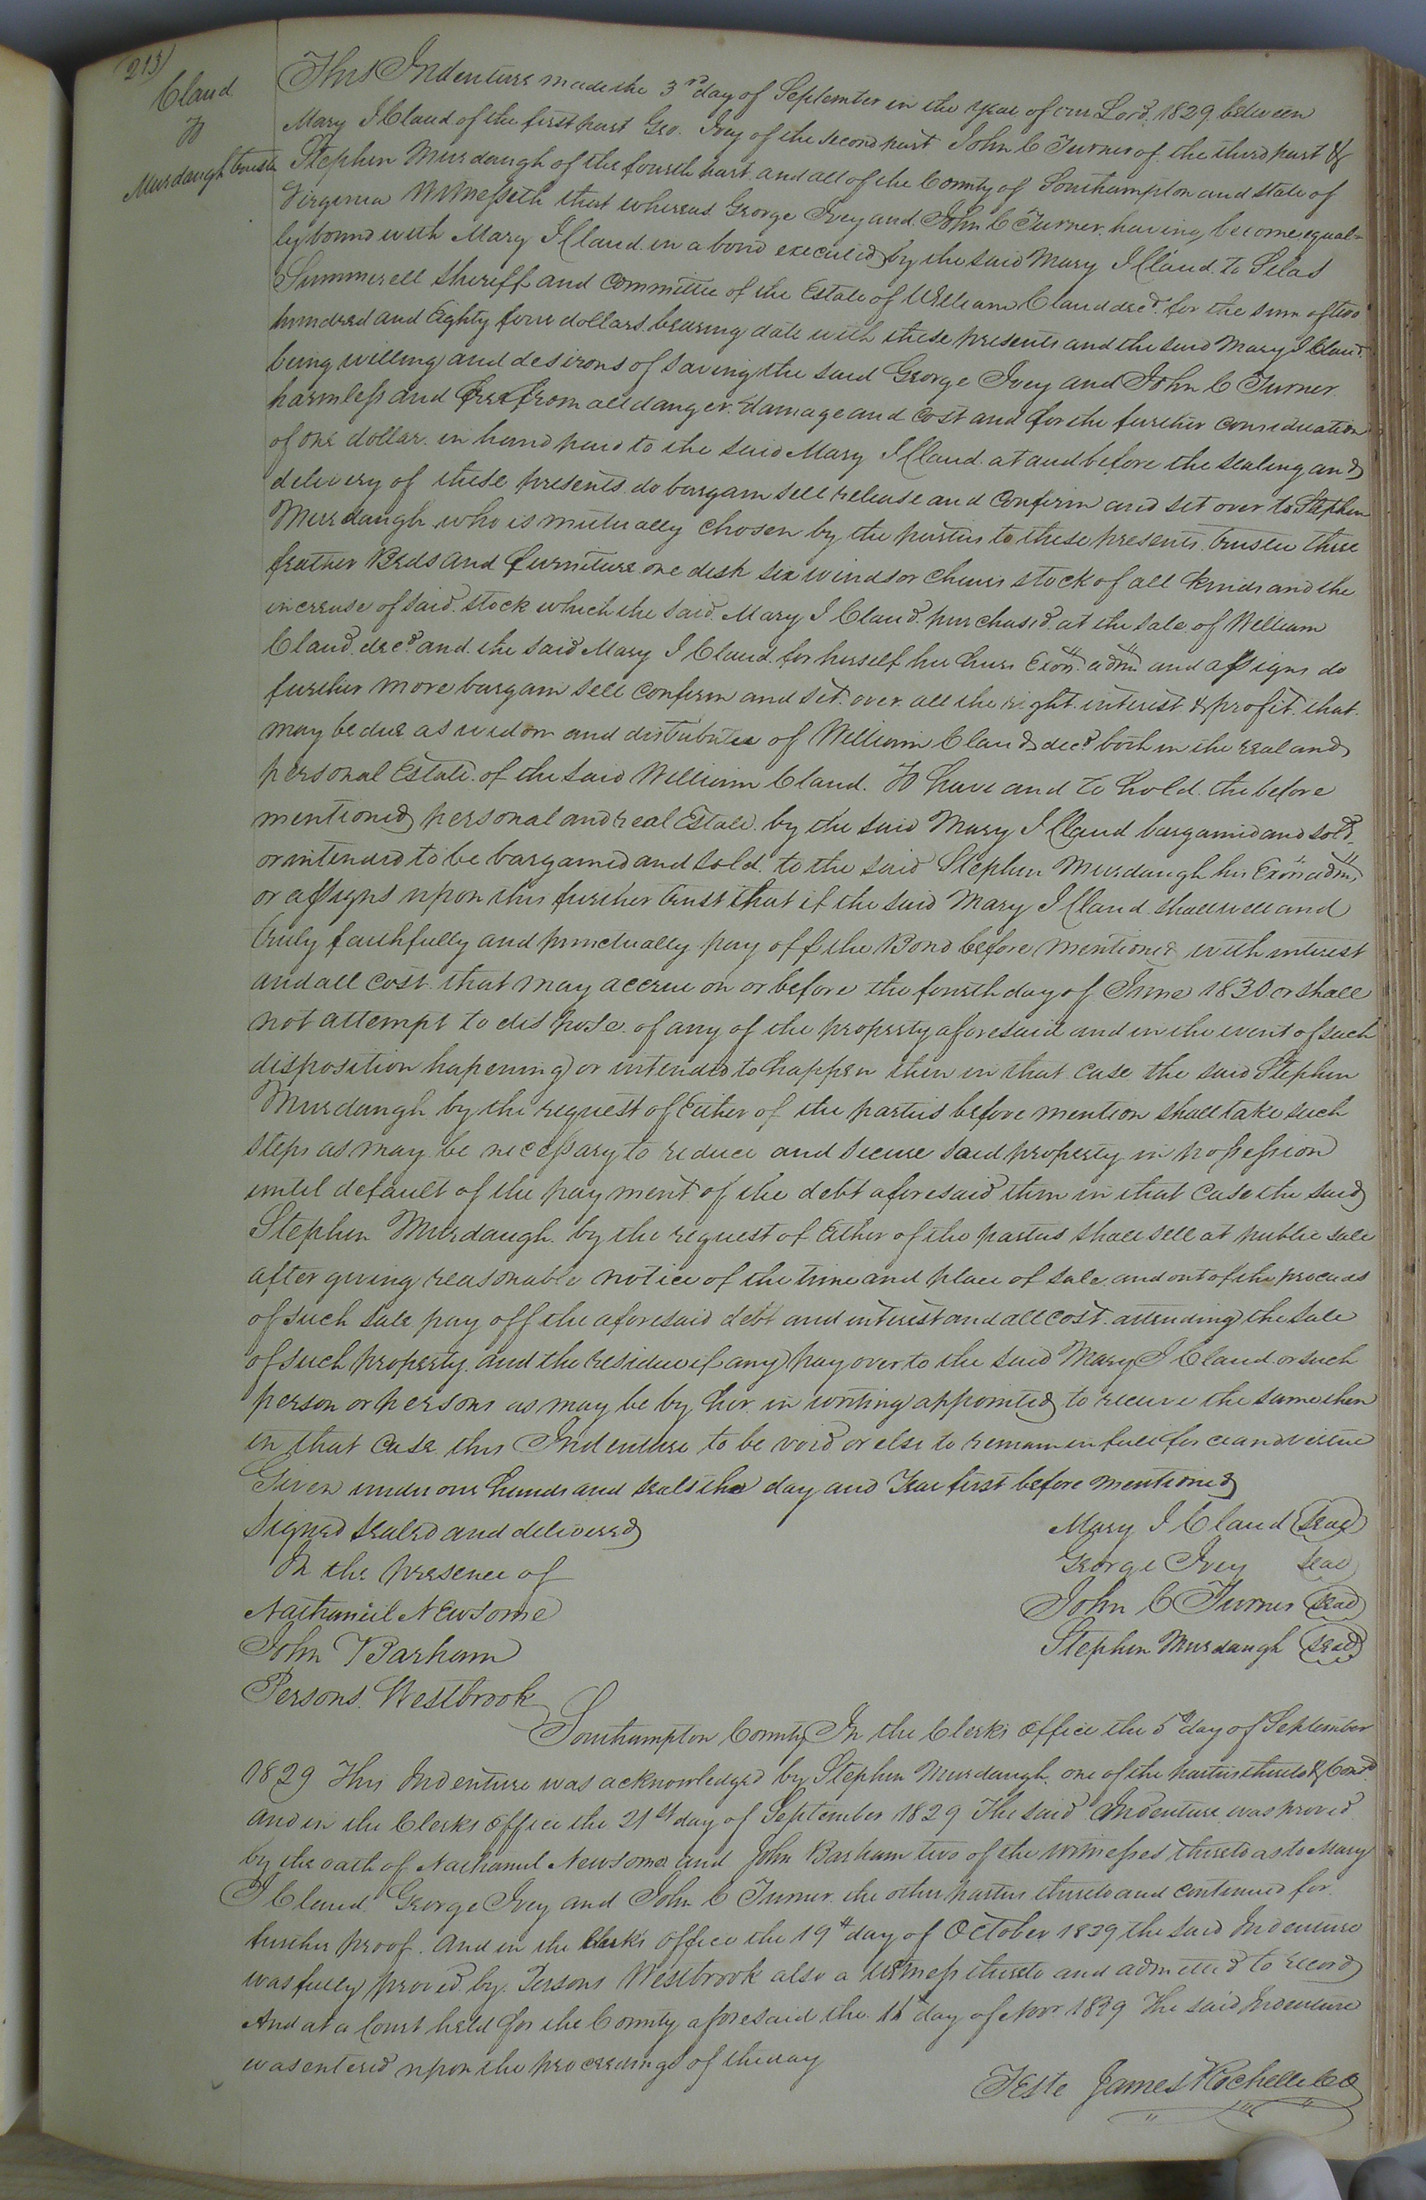 213)
Claud
To
Murdaugh trustee
This Indenture made the 3rd day of September in the year of our Lord 1829 between
Mary I Claud of the first part Geo. Ivey of the second part John C Turner of the third part &
Stephen Murdaugh of the fourth part and all of the County of Southampton and state of
Virginia Witnesseth that whereas George Ivey and John C Turner having become equal-
ly bound with Mary I Claud in a bond executed by the said Mary I Claud to Silas
Summerell Sheriff and Committee of the Estate of William Claud decd. for the sum of two
hundred and Eighty four dollars bearing date with these presents and the said Mary I Claud
being willing and desirous of saving the said George Ivey and John C Turner
harmless and free from all danger damage and cost and for the further consideration
of one dollar in hand paid to the said Mary I Claud at and before the sealing and
delivery of these presents do bargain sell release and confirm and set over to Stephen
Murdaugh who is mutually chosen by the parties to these presents trustee three
feather Beds and furniture one desk six windsor chairs stock of all kinds and the
increase of said stock which the said Mary I Claud purchased at the sale of William
Claud decd and the said Mary I Claud for herself her heirs Exors admrs and assigns do
further more bargain sell confirm and set over all the right interest & profit that
may be due as widow and distributee of William Claud decd both in the real and
personal Estate of the said William Claud. To have and to hold the before
mentioned personal and real Estate by the said Mary I Claud bargained and sold
or intended to be bargained and sold to the said Stephen Murdaugh his Exors admrs
or assigns upon this further trust that if the said Mary I Claud shall well and
truly faithfully and punctually pay off the Bond before mentioned with interest
and all cost that may accrue on or before the fourth day of June 1830 or shall
not attempt to dispose of any of the property aforesaid and in the event of such
disposition hapening or intended to happen then in that case the said Stephen
Murdaugh by the request of Either of the parties before mention shall take such
steps as may be necessary to reduce and secure said property in possession
until default of the payment of the debt aforesaid then in that case the said
Stephen Murdaugh by the request of Either of the parties shall sell at public sale
after giving reasonable notice of the time and place of sale and out of the proceeds
of such sale pay off the aforesaid debt and interest and all cost attending the sale
of such property and the residue if any pay over to the said Mary I Claud or such
person or persons as may be by her in writing appointed to receive the same then
in that case this Indenture to be void or else to remain in full force and virtue
Given under our hands and seals the day and Year first before mentioned
Signed Sealed and delivered
In the presence of
Nathaniel Newsome
John Barham
Persons Westbrook
Mary I Claud Seal
George Ivey Seal
John C Turner Seal
Stephen Murdaugh Seal
Southampton County In the Clerks Office the 5th day of September
1829 This Indenture was acknowledged by Stephen Murdaugh one of the parties thereto & Contd
and in the Clerks Office the 21st day of September 1829 The said Indenture was proved
by the oath of Nathaniel Newsome and John Barham two of the witnesses thereto as to Mary
I Claud George Ivey and John C Turner the other parties thereto and continued for
further proof. And in the Clerks Office the 19th day of October 1829 the said Indenture
was fully proved by Persons Westbrook also a witness thereto and admitted to record
And at a Court held for the County aforesaid the 16 day of Novr 1829 The said Indenture
was entered upon the proceedings of the day
Teste James Rochelle CC